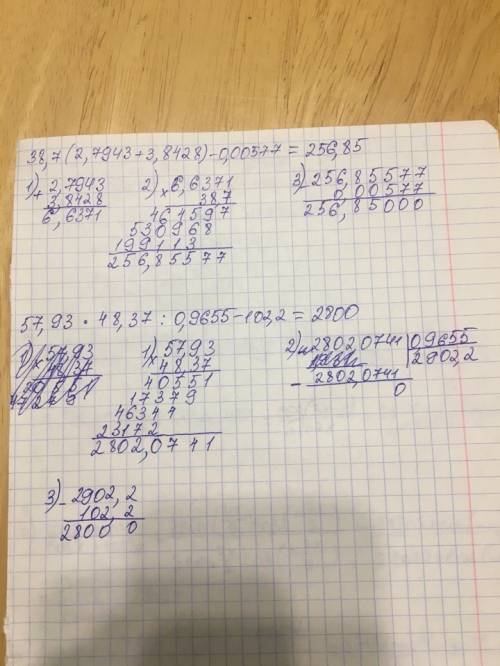 38,7(2,7943+3,8428)-0,00577=256,85
1) + 2,7943
3,8428
6,6371
2) × 6,6371
387
464597
530968
199113
256,85577
3) - 256,85577
0,00577
256,85000
57,93 · 48,37 : 0,9655-102,2=2800
1) × 57,93
48,37
40551
17379
46344
23172
2802,0741
2) 28020741 | 0,9655
2902,2
- 2802,0741
0
3) - 2902,2
102,2
2800 0